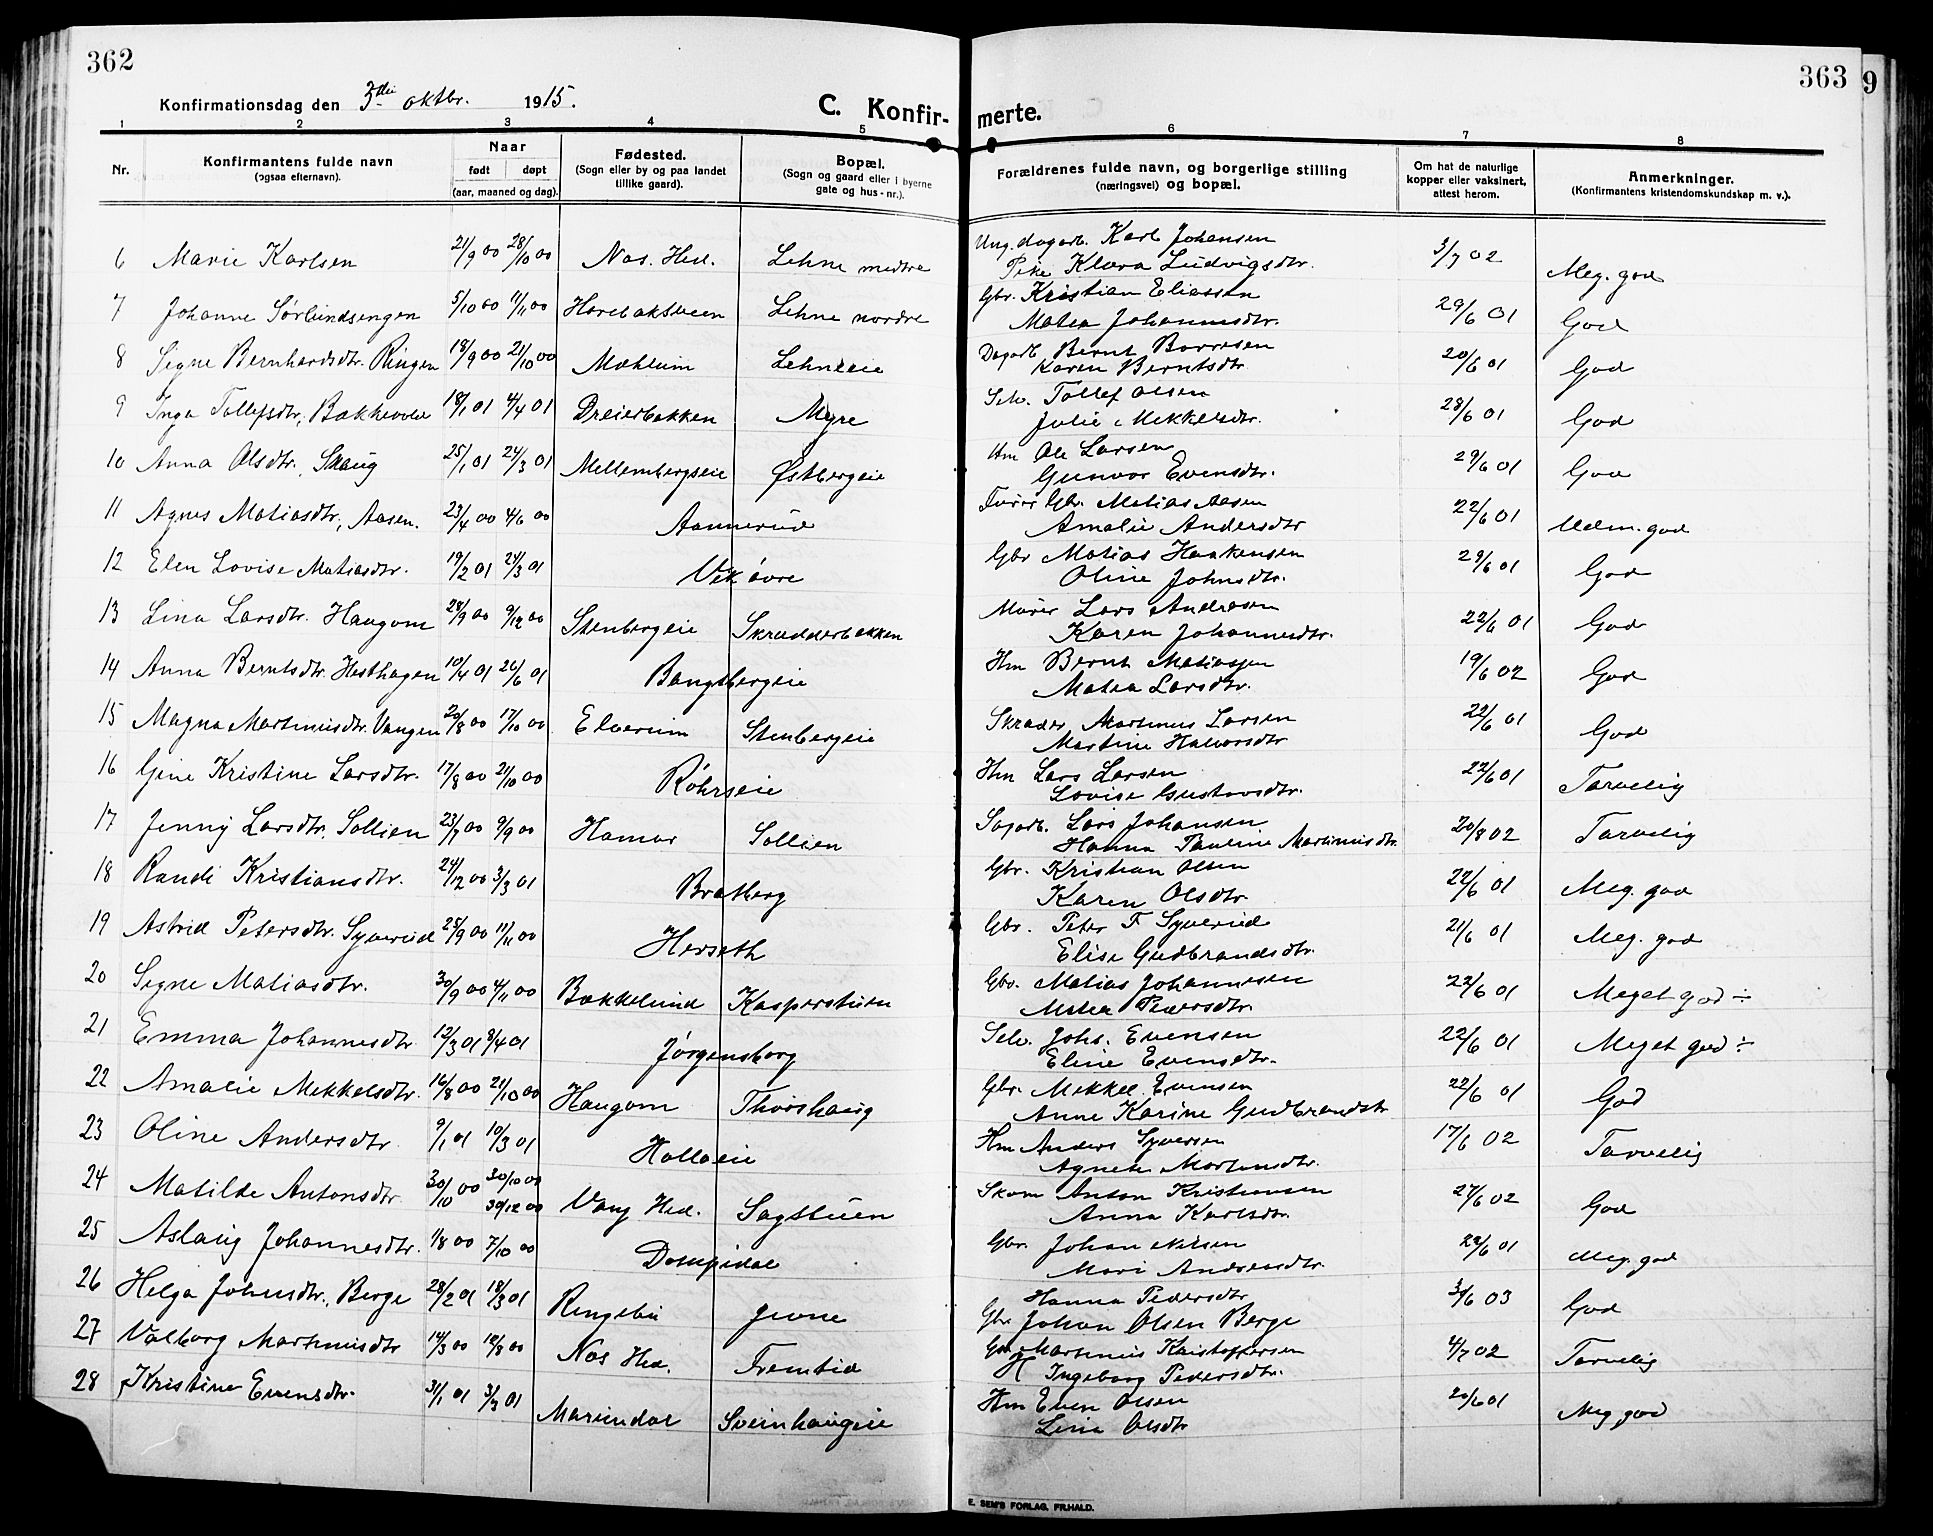 362
363
9
Konfirmationsdag den 3die oktbr. 1915.
C. Konfir-
merte.
1 2 3 4 5 6 7 8
Nr.
Konfirmantens fulde navn
(ogsaa efternavn).
Naar
født døpt
(aar, maaned og dag).
Fødested.
(Sogn eller by og paa landet
tillike gaard).
Bopæl.
(Sogn og gaard eller i byerne
gate og hus-nr.).
Forældrenes fulde navn, og borgerlige stilling
(næringsvei) og bopæl.
Om hat de naturlige
kopper eller vaksinert,
attest herom.
Anmerkninger.
(Konfirmantens kristendomskundskap m. v.).
6 Marie Karlsen 21/9 00 28/10 00 Nas. Hed. Lehne medtre Ung. dagarb. Karl Johansen 3/7 02 Meg. god
Pike Klara Ludvigsdtr.
7 Johanne Sørlundsengen 5/10 00 11/11 00 Lehne nordre Gbr. Kristian Eliassen 29/6 01 God
Matea Johannesdtr.
8 Signe Bernhardsdtr. Ringen 18/9 00 21/10 00 Mæhlum Lehneeie Dagarb. Bernt 20/6 01 God
Karen Berntsdtr.
9 Inga Tollefsdtr., 18/1 01 4/4 01 Dreierbakken Myre Selv. Tollef Olsen 28/6 01 God
Julie Mekkelsdtr.
10 Anna Olsdtr., Skaug 25/1 01 24/3 01 Mellembergseie Østbergeie Hm Ole Larsen 29/6 01 God
Gunvor Evensdtr.
11 Agnes Matiasdtr., Aasen. 23/4 00 4/6 00 Aannerud Gbr. Matias Aasen 22/6 01 Udm. god
Amalie Andersdtr
12 Elen Lovise Matiasdtr. 19/2 01 24/3 01 Vik øvre Gbr Matias Haakensen 29/6 01 God
Oline Johnsdtr.
13 Lina Larsdtr. Haugom 28/9 00 9/12 00 Stenbergeie Skrædderbakken Murer Lars Andresen 22/6 01 God
Karen Johannesdtr.
14 Anna Berntsdtr. Hesthagen 10/4 01 26/6 01 Bangsbergeie Hm Bernt Matiassen 19/6 02 God
Matea Larsdtr.
15 Magna Martinusdtr. Vangen 20/8 00 17/10 00 Elverum Stenbergeie Skræder Martinus Larsen 22/6 01 God
Martine Halvorsdtr
16 Gine Kristine Larsdtr. 17/8 00 21/10 00 Røhrseie Hm Lars Larsen 22/6 01 Tarvelig
Lovise Gustavsdtr.
17 Jenny Larsdtr. Sollien 23/7 00 9/9 00 Hamar Sollien Sagarb. Lars Johansen 20/8 02 Tarvelig
Hanna Pauline Martinusdtr.
18 Randi Kristiansdtr. 24/12 00 3/3 01 Bratberg Gbr. Kristian Olsen 22/6 01 Meg. god
Karen Olsdtr.
19 Astrid Petersdtr. Syverud 25/9 00 11/11 00 Herseth Gbr. Peter F Syverud 21/6 01 Meg. god
Elise Gudbrandsdtr.
20 Signe Matiasdtr. 30/9 00 4/11 00 Bækkelund Kasperstuen Gbr. Matias Johannesen 22/6 01 Meget god ÷
Matea Pedersdtr.
21 Emma Johannesdtr 12/3 01 8/4 01 Jørgensborg Selv. Johs. Evensen 22/6 01 Meget god ÷
Eline Evensdtr.
22 Amalie Mekkelsdtr. 16/8 00 21/10 00 Haugom Thorshaug Gbr. Mekkel Evensen 22/6 01 God
Anne Karine Gudbrandsdtr
23 Oline Andersdtr 9/1 01 10/3 01 Hm Anders Syversen 17/6 02 Tarvelig
Agnete Martinsdtr.
24 Matilde Antonsdtr. 30/10 00 30/10 00 30/12 00 Vang Hed. Sagstuen Skom Anton Kristiansen 27/6 02 God
Anna Karlsdtr.
25 Aslaug Johannesdtr. 1/8 00 7/10 00 Gbr. Johan Nilsen 22/6 01 Meg. god
Mari Andersdtr.
26 Helga Johansdtr., Berge 28/2 01 18/3 01 Ringebu Hanna Pedersdtr 3/6 03 God
Gbr Johan Olsen Berge
27 Valborg Martinusdtr 14/3 00 12/8 00 Nas Hed. Fremtid Gbr Martinus Kristoffersen 4/7 02 Tarvelig
H Ingeborg Pedersdtr.
28 Kristine Evensdtr. 31/1 01 3/3 01 Marundar Sveinhaugeie Hm Even Olsen 20/6 01 Meg god
Lina Olsdtr
E. SEM'S FORLAG, FR.HALD.